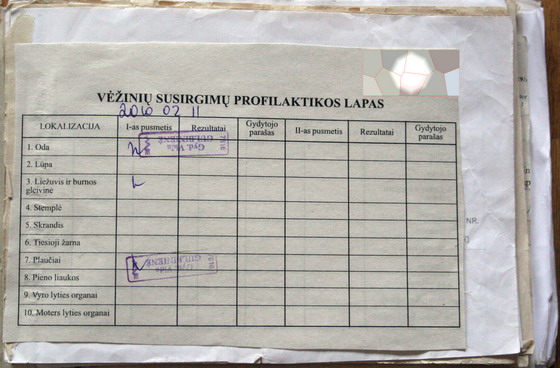 VĖŽINIŲ SUSIRGIMŲ PROFILAKTIKOS LAPAS
LOKALIZACIJA I-as pusmetis Rezultatai Gydytojo parašas II-as pusmetis Rezultatai Gydytojo parašas
1. Oda
2. Lūpa
3. Liežuvis ir burnos
gleivinė
4. Stemplė
5. Skrandis
6. Tiesioji žarna
7. Plaučiai
8. Pieno liaukos
9. Vyro lyties organai
10. Moters lyties organai
NR.